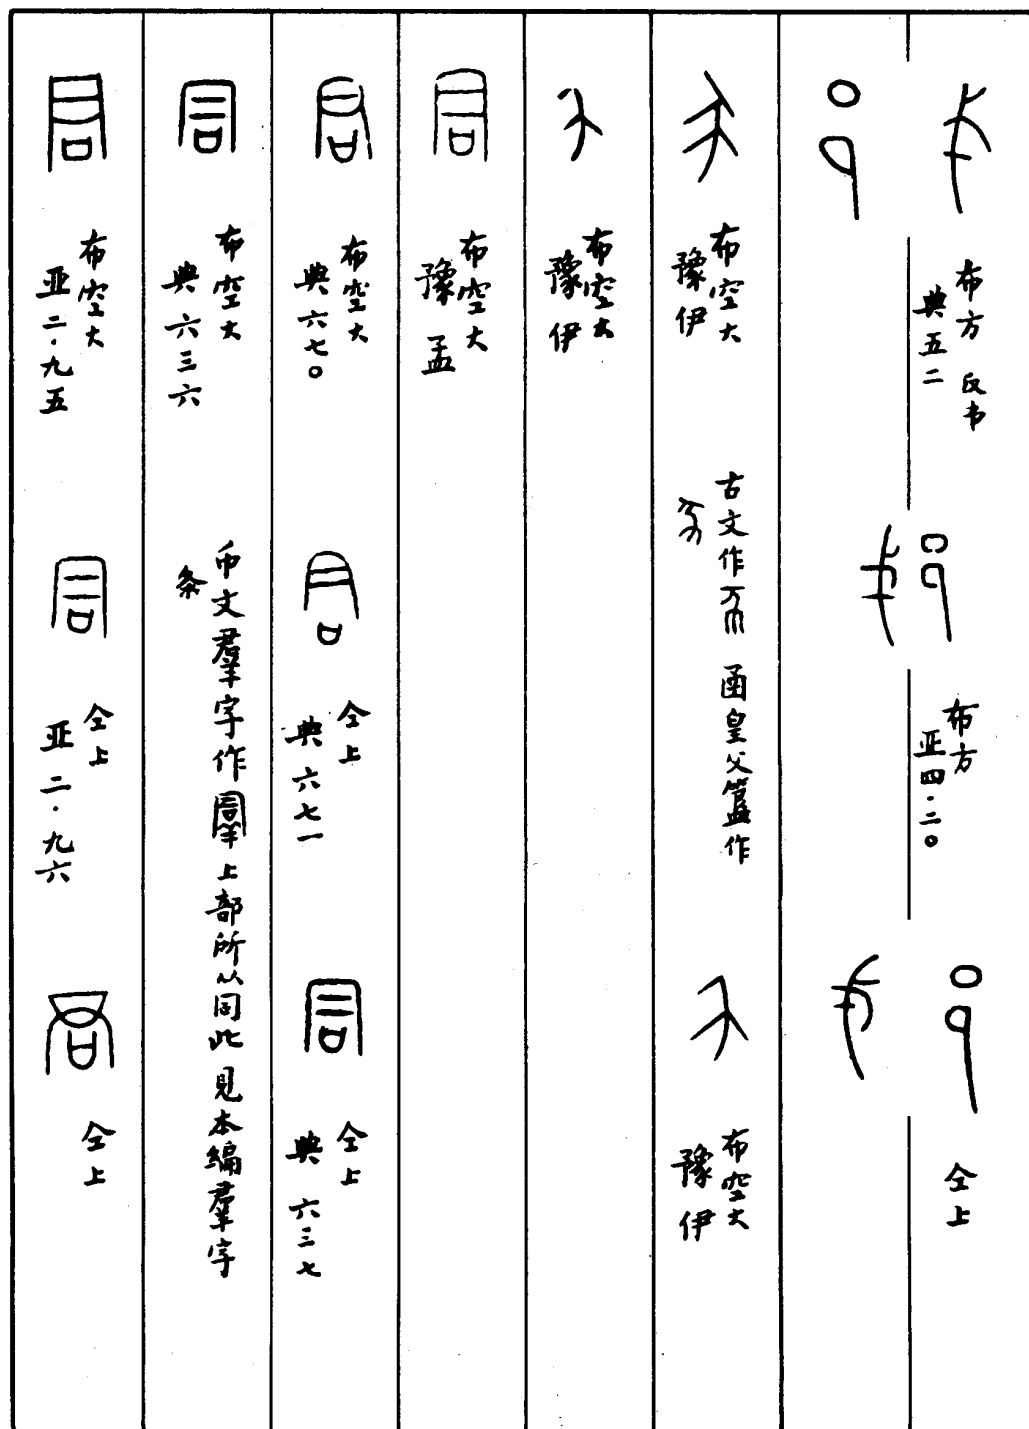 布方 反书
典五二
布方
亚四·二〇
仝上
布空大
豫伊
古文作
函皇父簋作
布空大
豫伊
布空大
豫伊
布空大
豫孟
布空大
典六七〇
仝上
典六七一
仝上
典六三七
布空大
典六三六
币文羣字作
上部所从同此见本编羣字
条
布空大
亚二·九五
仝上
亚二·九六
仝上